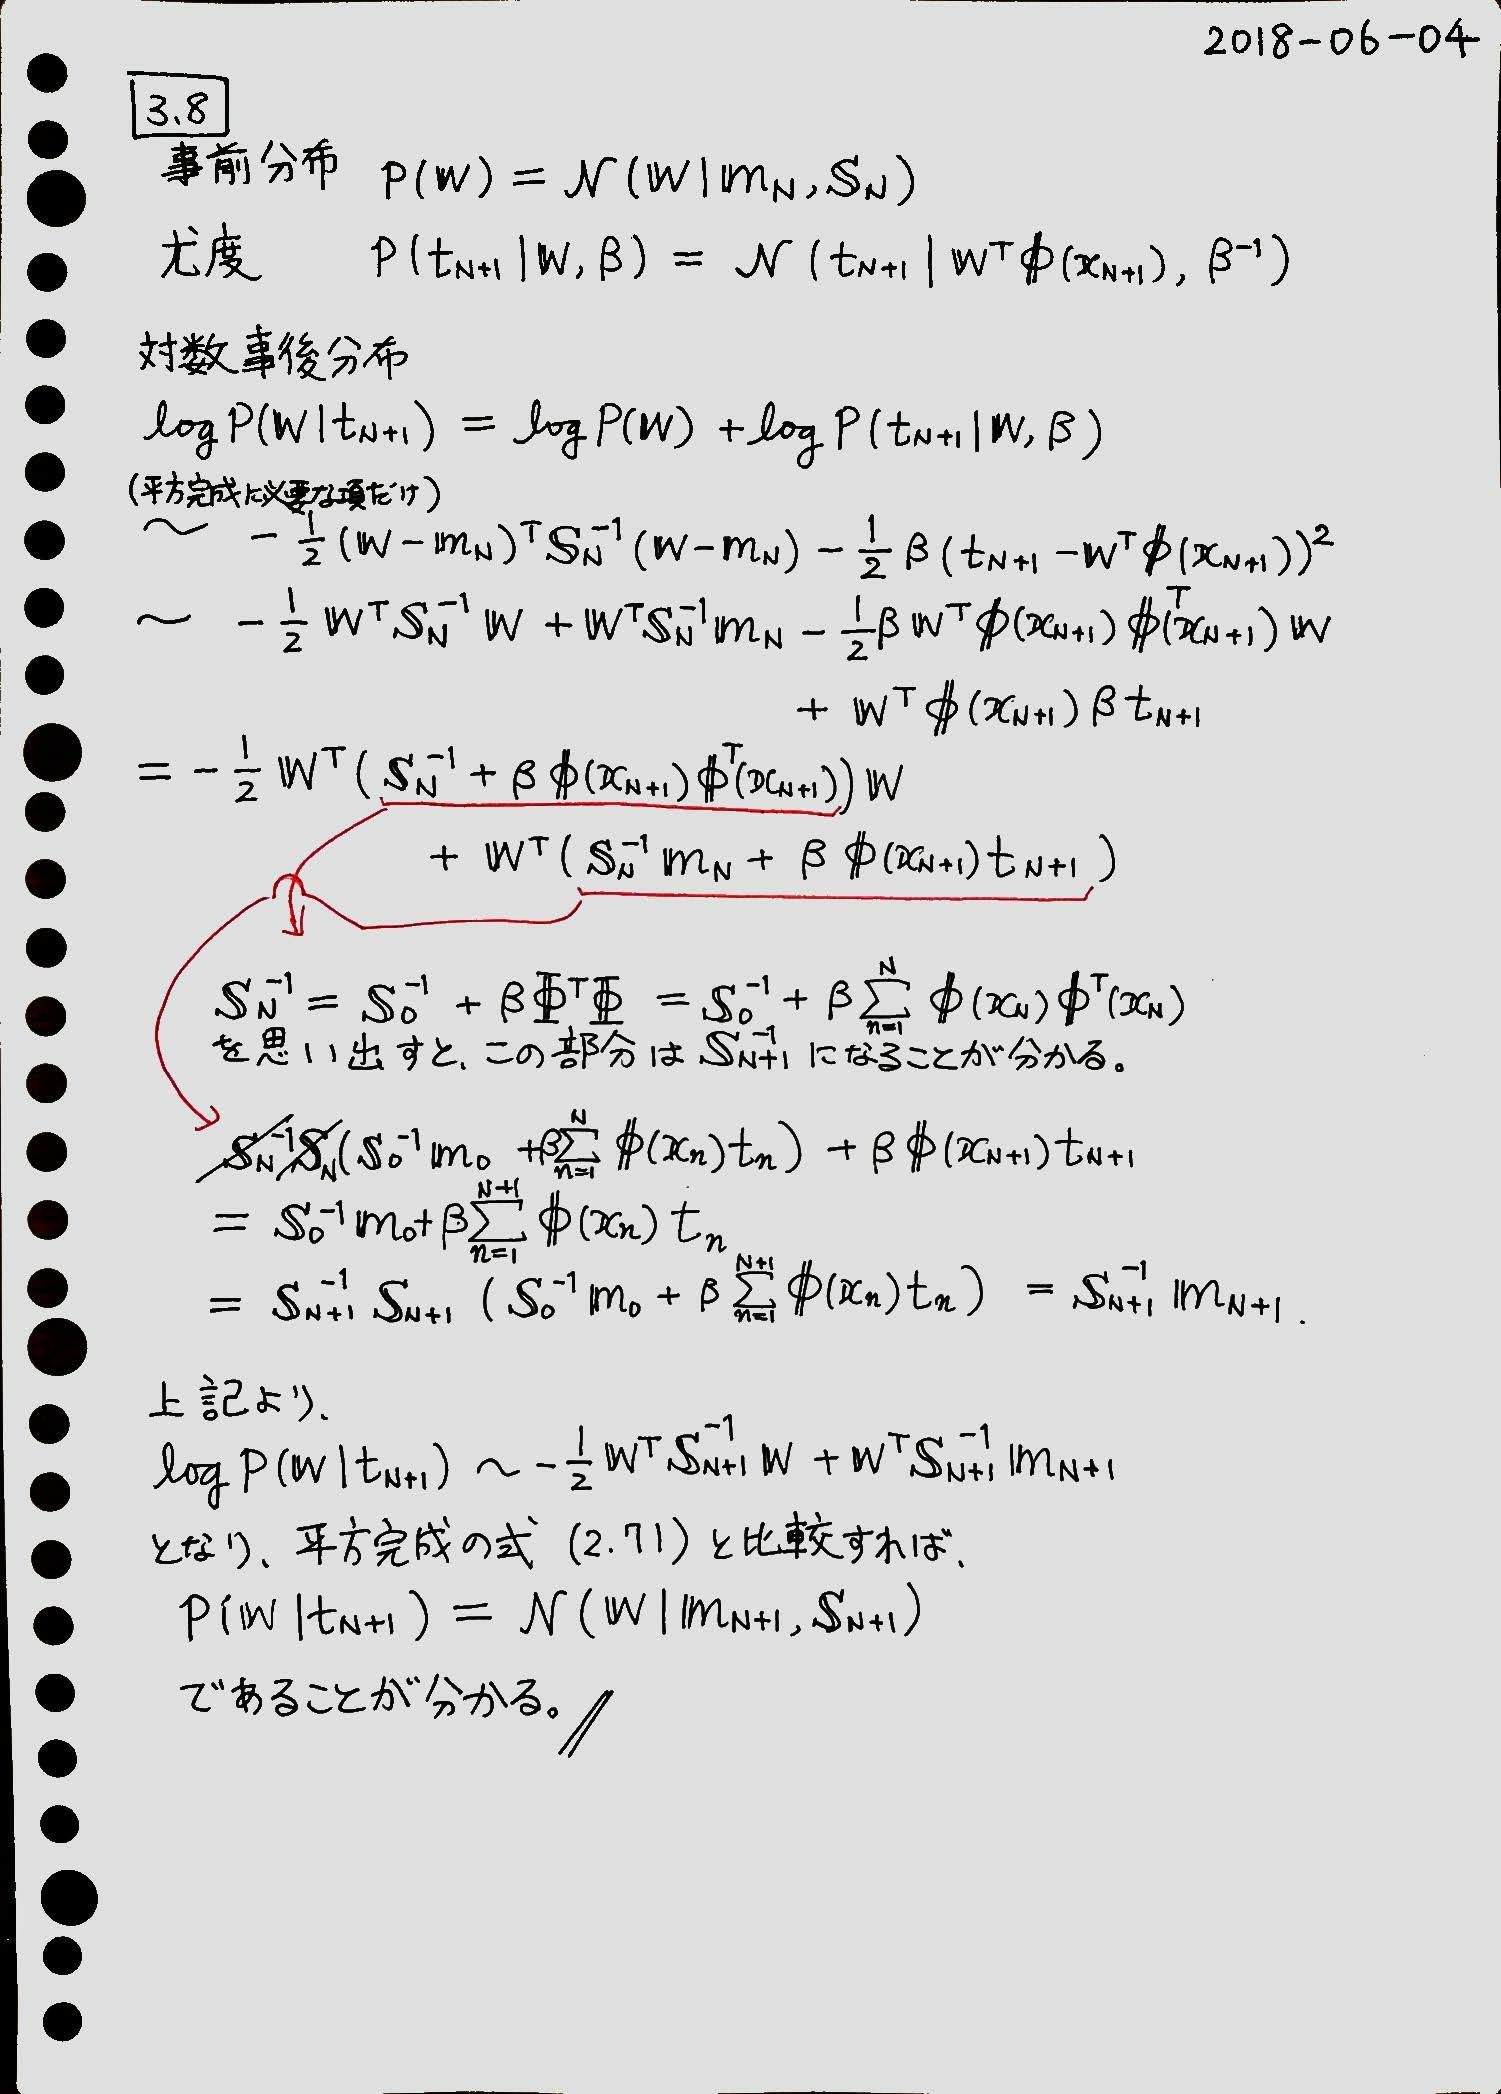 2018-06-04
3.8
事前分布 P(W) = N(W|m_N, S_N)
尤度 P(t_{N+1}|W, β) = N(t_{N+1}|W^T φ(x_{N+1}), β^{-1})
対数事後分布
log P(W|t_{N+1}) = log P(W) + log P(t_{N+1}|W, β)
(平方完成に必要な項だけ)
~ -1/2 (W-m_N)^T S_N^{-1} (W-m_N) - 1/2 β(t_{N+1} - W^T φ(x_{N+1}))^2
~ -1/2 W^T S_N^{-1} W + W^T S_N^{-1} m_N - 1/2 β W^T φ(x_{N+1}) φ^T(x_{N+1}) W
+ W^T φ(x_{N+1}) β t_{N+1}
= -1/2 W^T (S_N^{-1} + β φ(x_{N+1}) φ^T(x_{N+1})) W
+ W^T (S_N^{-1} m_N + β φ(x_{N+1}) t_{N+1})
S_N^{-1} = S_0^{-1} + β Φ^T Φ = S_0^{-1} + β Σ_{n=1}^{N} φ(x_N) φ^T(x_N)
を思い出すと、この部分は S_{N+1}^{-1} になることが分かる。
S_N^{-1} S_N (S_0^{-1} m_0 + β Σ_{n=1}^{N} φ(x_n) t_n) + β φ(x_{N+1}) t_{N+1}
= S_0^{-1} m_0 + β Σ_{n=1}^{N+1} φ(x_n) t_n
= S_{N+1}^{-1} S_{N+1} (S_0^{-1} m_0 + β Σ_{n=1}^{N+1} φ(x_n) t_n) = S_{N+1}^{-1} m_{N+1}.
上記より、
log P(W|t_{N+1}) ~ -1/2 W^T S_{N+1}^{-1} W + W^T S_{N+1}^{-1} m_{N+1}
となり、平方完成の式 (2.71) と比較すれば、
P(W|t_{N+1}) = N(W|m_{N+1}, S_{N+1})
であることが分かる。//